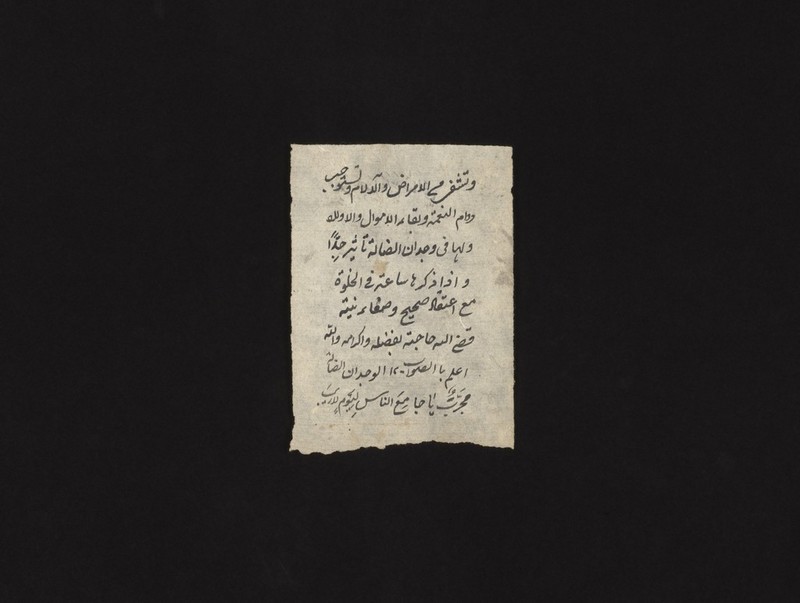 وتشفى من الامراض والآلام وتستوجب
دوام النعمة وبقاء الاموال والاولاد
ولها فى وجدان الضالة تأثير جدًّا
و اذا ذكرها ساعة فى الخلوة
مع اعتقاد صحيح وصفاء نية
قضى الله حاجته بفضله واكرامه والله
اعلم باالصواب ١٢ الوجدان الضالة
مجرب يا جامع الناس ليوم لاريب